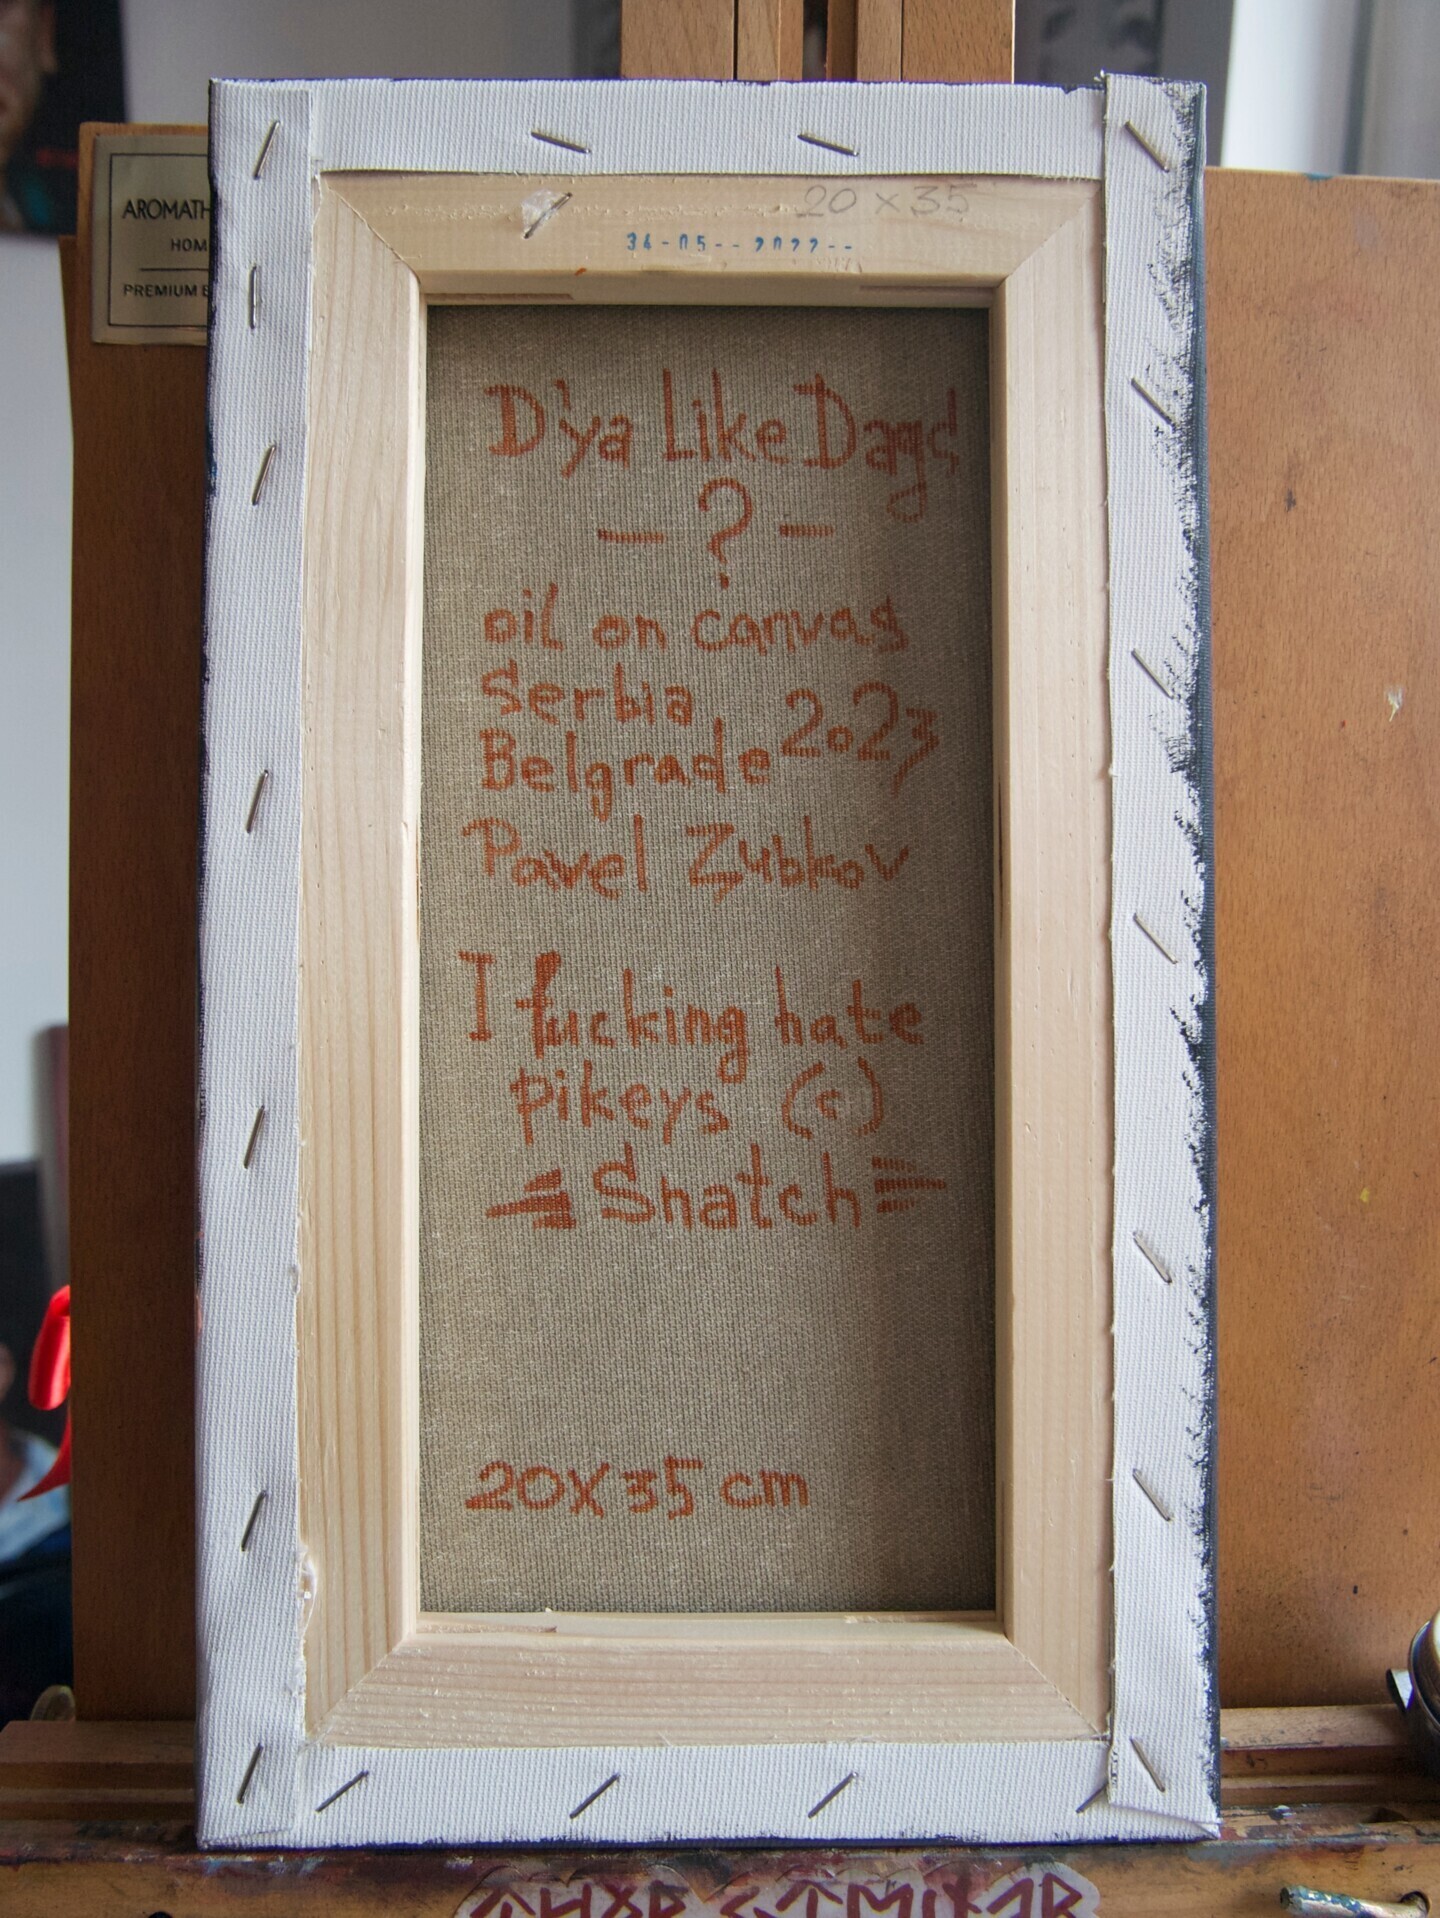 AROMATH
HOM
PREMIUM
20 x 35
34-05--2022--
D'ya Like Dags
- ? -
oil on canvas
Serbia,
Belgrade 2023
Pavel Zubkov
I fucking hate
pikeys (c)
Snatch
20X35 cm